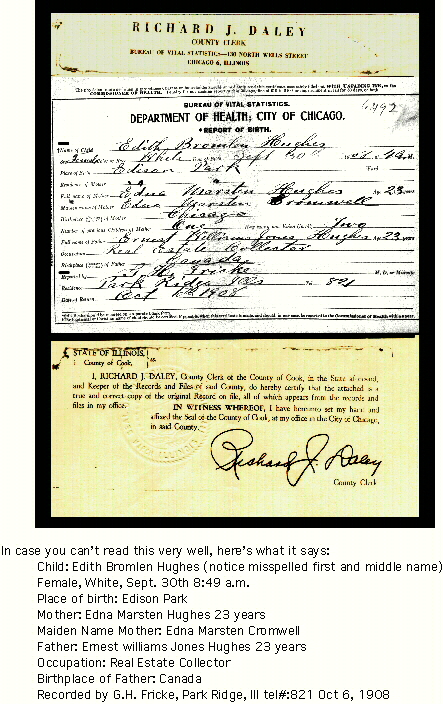 RICHARD J. DALEY
COUNTY CLERK
BUREAU OF VITAL STATISTICS—130 NORTH WELLS STREET
CHICAGO 6, ILLINOIS
COMMISSIONER OF HEALTH.
BUREAU OF VITAL STATISTICS.
DEPARTMENT OF HEALTH; CITY OF CHICAGO.
REPORT OF BIRTH.
Name of Child Edith Bromlen Hughes
White Sept 30th
Place of Birth Edison Park
Residence of Mother
Full name of Mother Edna Marsten Hughes Age 23 years
Maiden name of Mother Edna Marsten Cromwell
Chicago
One Two
Full name of Father Ernest Williams Jones Hughes 23 years
Occupation Real Estate Collector
Birthplace of Father Canada
Reported by G. H. Fricke M. D. or Midwife
Residence Park Ridge Ills 821
Date of Return Oct 6th 1908
STATE OF ILLINOIS,
County of Cook,
I, RICHARD J. DALEY, County Clerk of the County of Cook, in the State aforesaid,
and Keeper of the Records and Files of said County, do hereby certify that the attached is a
true and correct copy of the original Record on file, all of which appears from the records and
files in my office.
IN WITNESS WHEREOF, I have hereunto set my hand and
affixed the Seal of the County of Cook, at my office in the City of Chicago,
in said County.
Richard J. Daley
County Clerk
In case you can't read this very well, here's what it says:
Child: Edith Bromlen Hughes (notice misspelled first and middle name)
Female, White, Sept. 30th 8:49 a.m.
Place of birth: Edison Park
Mother: Edna Marsten Hughes 23 years
Maiden Name Mother: Edna Marsten Cromwell
Father: Ernest williams Jones Hughes 23 years
Occupation: Real Estate Collector
Birthplace of Father: Canada
Recorded by G.H. Fricke, Park Ridge, Ill tel#:821 Oct 6, 1908